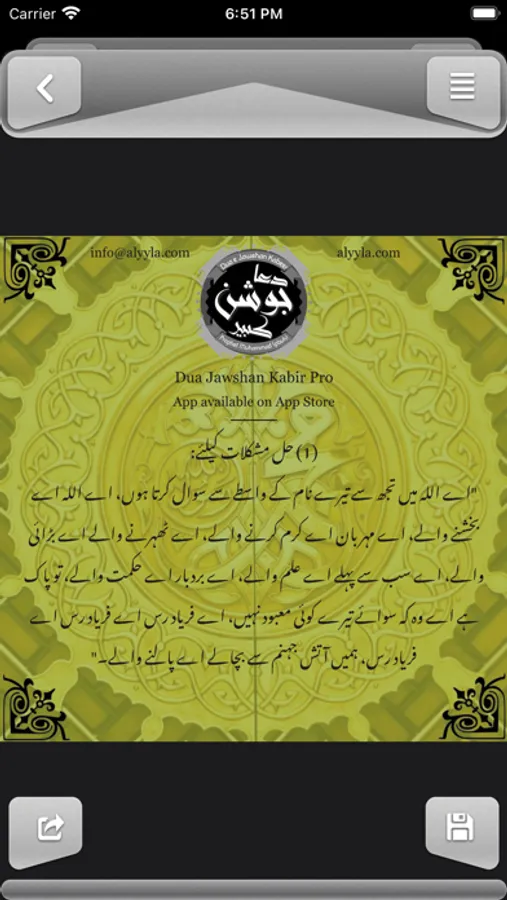 Carrier 6:51 PM
info@alyyla.com alyyla.com
Dua e Jawshan Kabeer
دعا
جوشن
کبیر
Dua Jawshan Kabir Pro
App available on App Store
(1) حل مشکلات کیلئے:
"اے اللہ میں تجھ سے تیرے نام کے واسطے سے سوال کرتا ہوں، اے اللہ اے
بخشنے والے، اے مہربان اے کرم کرنے والے، اے ٹھہرنے والے اے بڑائی
والے، اے سب سے پہلے اے علم والے، اے بردبار اے حکمت والے، تو پاک
ہے اے وہ کہ سوائے تیرے کوئی معبود نہیں، اے فریاد رس اے فریاد رس اے
فریاد رس، ہمیں آتش جہنم سے بچالے اے پالنے والے۔"